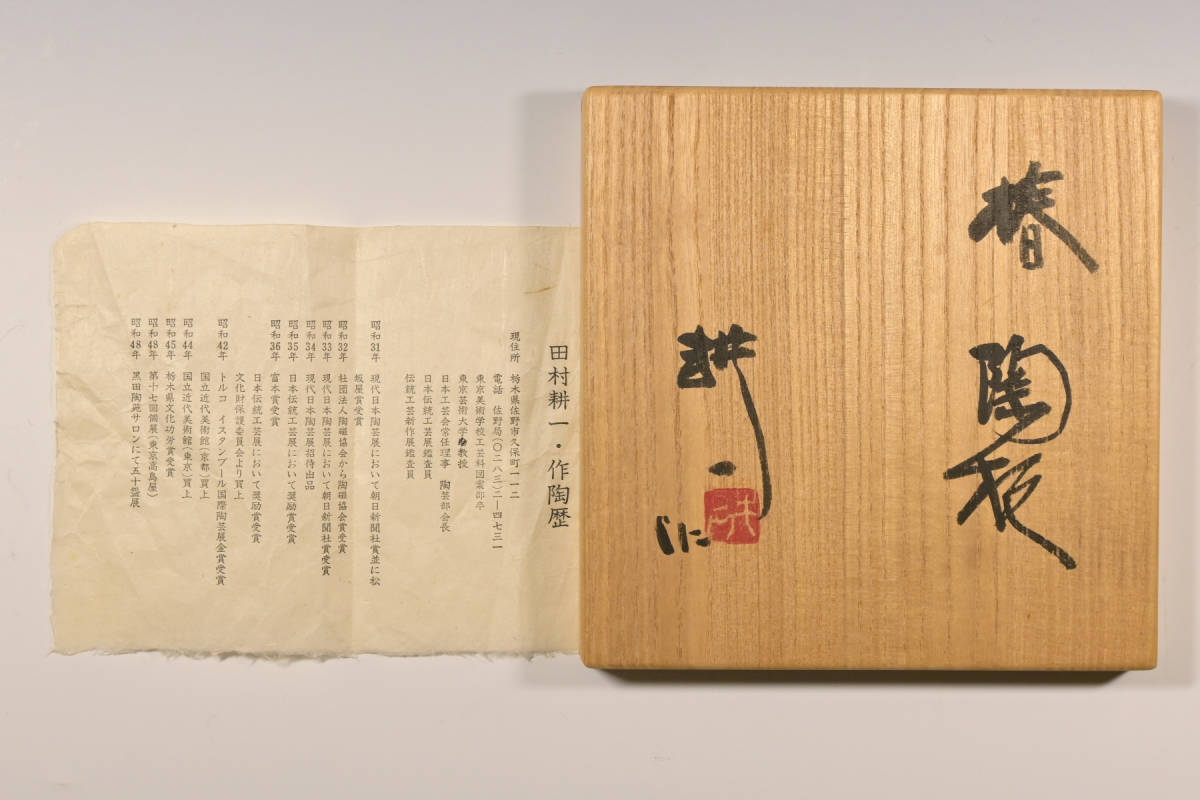 椿
陶板
耕一
田村耕一・作陶歴
現住所 栃木県佐野市久保町一一二
電話 佐野局(〇二八三)二―四七三一
東京美術学校工芸科図案部卒
東京芸術大学教授
日本工芸会常任理事 陶芸部会長
日本伝統工芸展鑑査員
伝統工芸新作展鑑査員
昭和31年 現代日本陶芸展において朝日新聞社賞並に松
坂屋賞受賞
昭和32年 社団法人陶磁協会から陶磁協会賞受賞
昭和33年 現代日本陶芸展において朝日新聞社賞受賞
昭和34年 現代日本陶芸展招待出品
昭和35年 日本伝統工芸展において奨励賞受賞
昭和36年 富本賞受賞
日本伝統工芸展において奨励賞受賞
文化財保護委員会より買上
昭和42年 トルコ イスタンブール国際陶芸展金賞受賞
国立近代美術館(京都)買上
昭和44年 国立近代美術館(東京)買上
昭和45年 栃木県文化功労賞受賞
昭和48年 第十七回個展(東京高島屋)
昭和48年 黒田陶苑サロンにて五十盌展